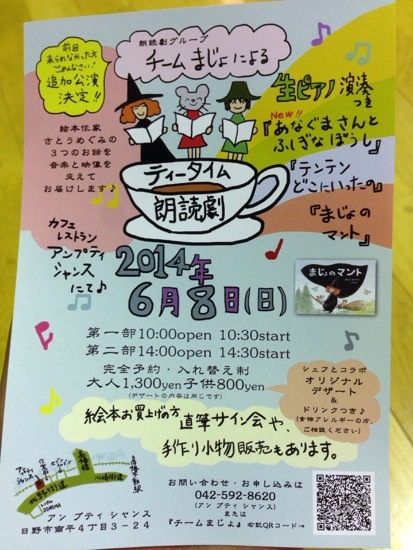 前回
来られなかった方
ごめんなさい!
追加公演
決定!!
朗読劇グループ
チームまじょによる
生ピアノ演奏
つき
New!!
『あなぐまさんと
ふしぎなぼうし』
『テンテン
どこにいったの』
『まじょの
マント』
絵本作家
さとうめぐみの
3つのお話を
音楽と映像を
交えて
お届けします♪
ティータイム
朗読劇
カフェ
レストラン
アンプティ
シャンス
にて♪
2014年
6月8日(日)
まじょのマント
第一部10:00open 10:30start
第二部14:00open 14:30start
完全予約・入れ替え制
大人1,300yen子供800yen
(デザートの内容は同じです)
シェフとコラボ
オリジナル
デザート
&
ドリンクつき♪
(食物アレルギーの方、
ご相談ください)
絵本お買上げの方 直筆サイン会や、
手作り小物販売もあります。
アンプティ
シャンス
北野街道
川崎街道
お問い合わせ・お申し込みは
042-592-8620
(アン プティ シャンス)
または
『チームまじょ』 右記QRコード→
アン プティ シャンス
日野市南平4丁目3-24